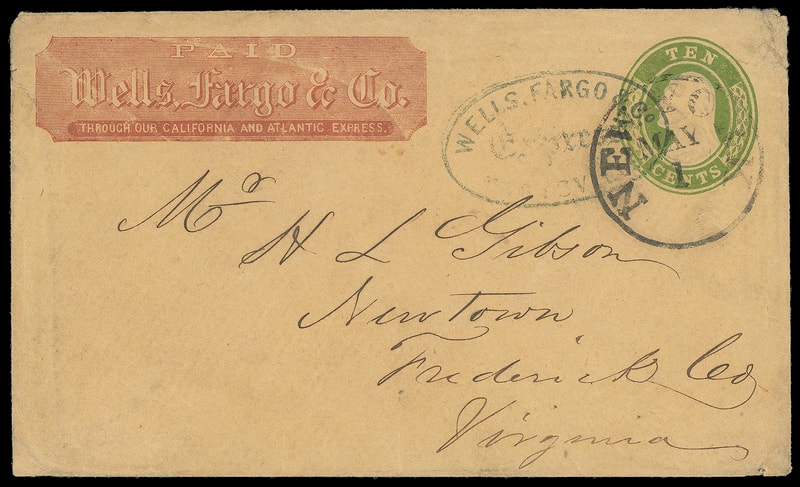 PAID
Wells, Fargo & Co.
THROUGH OUR CALIFORNIA AND ATLANTIC EXPRESS.
WELLS, FARGO & Co.
Express
TEN
CENTS
NEW
MAY
1
Mr
H L Gibson
Newtown
Frederick Co
Virginia